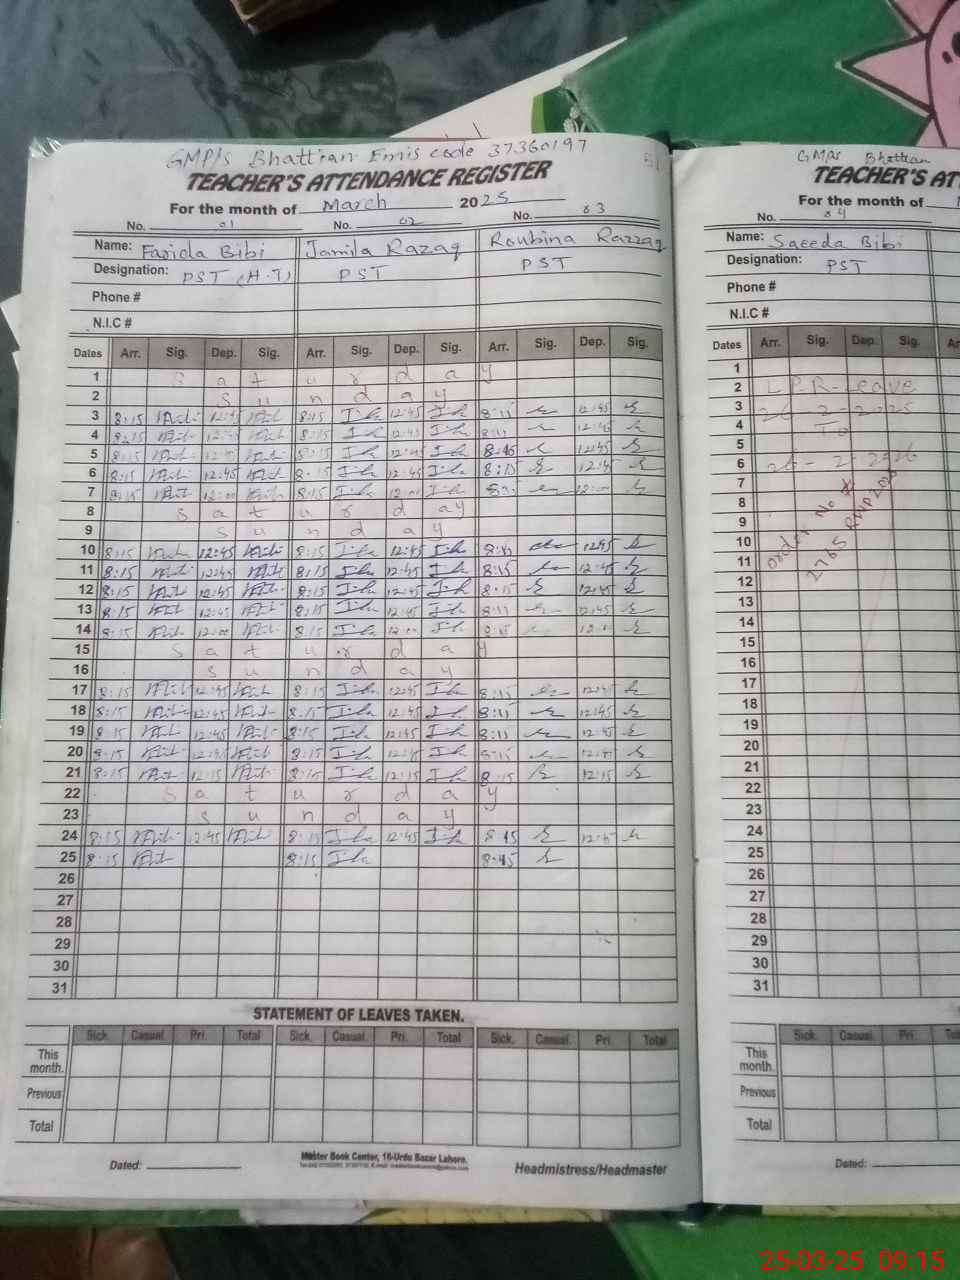 GMP/S Bhattian Emis code 37360197
TEACHER'S ATTENDANCE REGISTER
For the month of March 2025
No. 01 No. 02 No. 03
Name: Farida Bibi Jamila Razaq Roubina Razzaq
Designation: PST (H.T) PST PST
Phone #
N.I.C #
Dates Arr. Sig. Dep. Sig. Arr. Sig. Dep. Sig. Arr. Sig. Dep. Sig.
1 Saturday
2 Sunday
3 8:15 12:45 8:15 12:45 12:45
4 8:15 12:45 8:15 12:45 12:45
5 8:15 12:45 8:15 12:45 8:45 12:45
6 8:15 12:45 8:15 12:45 8:15 12:45
7 8:15 12:00 8:15 12:00 12:00
8 Saturday
9 Sunday
10 8:15 12:45 8:15 12:45 12:45
11 8:15 12:45 8:15 12:45 8:15 12:45
12 8:15 12:45 8:15 12:45 8:15 12:45
13 8:15 12:45 8:15 12:45 12:45
14 8:15 12:00 8:15 12:00
15 Saturday
16 Sunday
17 8:15 12:45 8:15 12:45 8:15 12:45
18 8:15 12:45 8:15 12:45 12:45
19 8:15 12:45 8:15 12:45 12:45
20 8:15 12:45 8:15 12:45 8:15 12:45
21 8:15 12:15 8:15 12:15 8:15 12:15
22 Saturday
23 Sunday
24 8:15 12:45 8:15 12:45 8:45 12:45
25 8:15 8:15 8:45
26
27
28
29
30
31
STATEMENT OF LEAVES TAKEN.
Sick. Casual. Pri. Total Sick. Casual. Pri. Total Sick. Casual. Pri. Total
This month.
Previous
Total
Dated:
Master Book Center, 16-Urdu Bazar Lahore.
Headmistress/Headmaster
GMPS Bhattian
TEACHER'S AT
For the month of
No. 04
Name: Saeeda Bibi
Designation: PST
Phone #
N.I.C #
Dates Arr. Sig. Dep. Sig.
1
2 LPR-Leave
3 26-2-2025
4 To
5
6 26-2-2026
7
8
9
10
11
order No #
2765
12
13
14
15
16
17
18
19
20
21
22
23
24
25
26
27
28
29
30
31
Sick. Casual. Pri.
This month.
Previous
Total
Dated:
25-03-25 09:15